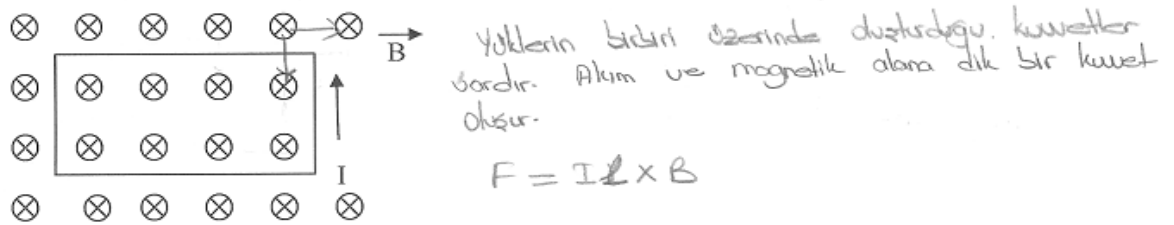 B
I
Yüklerin birbiri üzerinde oluşturduğu kuvvetler
vardır. Akım ve magnetik alana dik bir kuvvet
oluşur.
F = Il × B